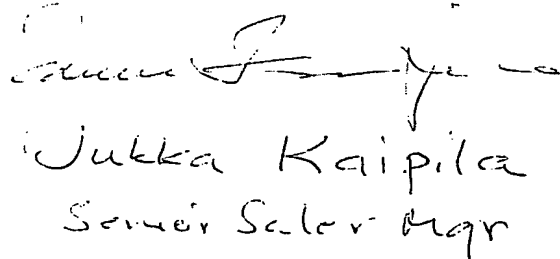 Jukka Kaipila
Senior Sales Mgr